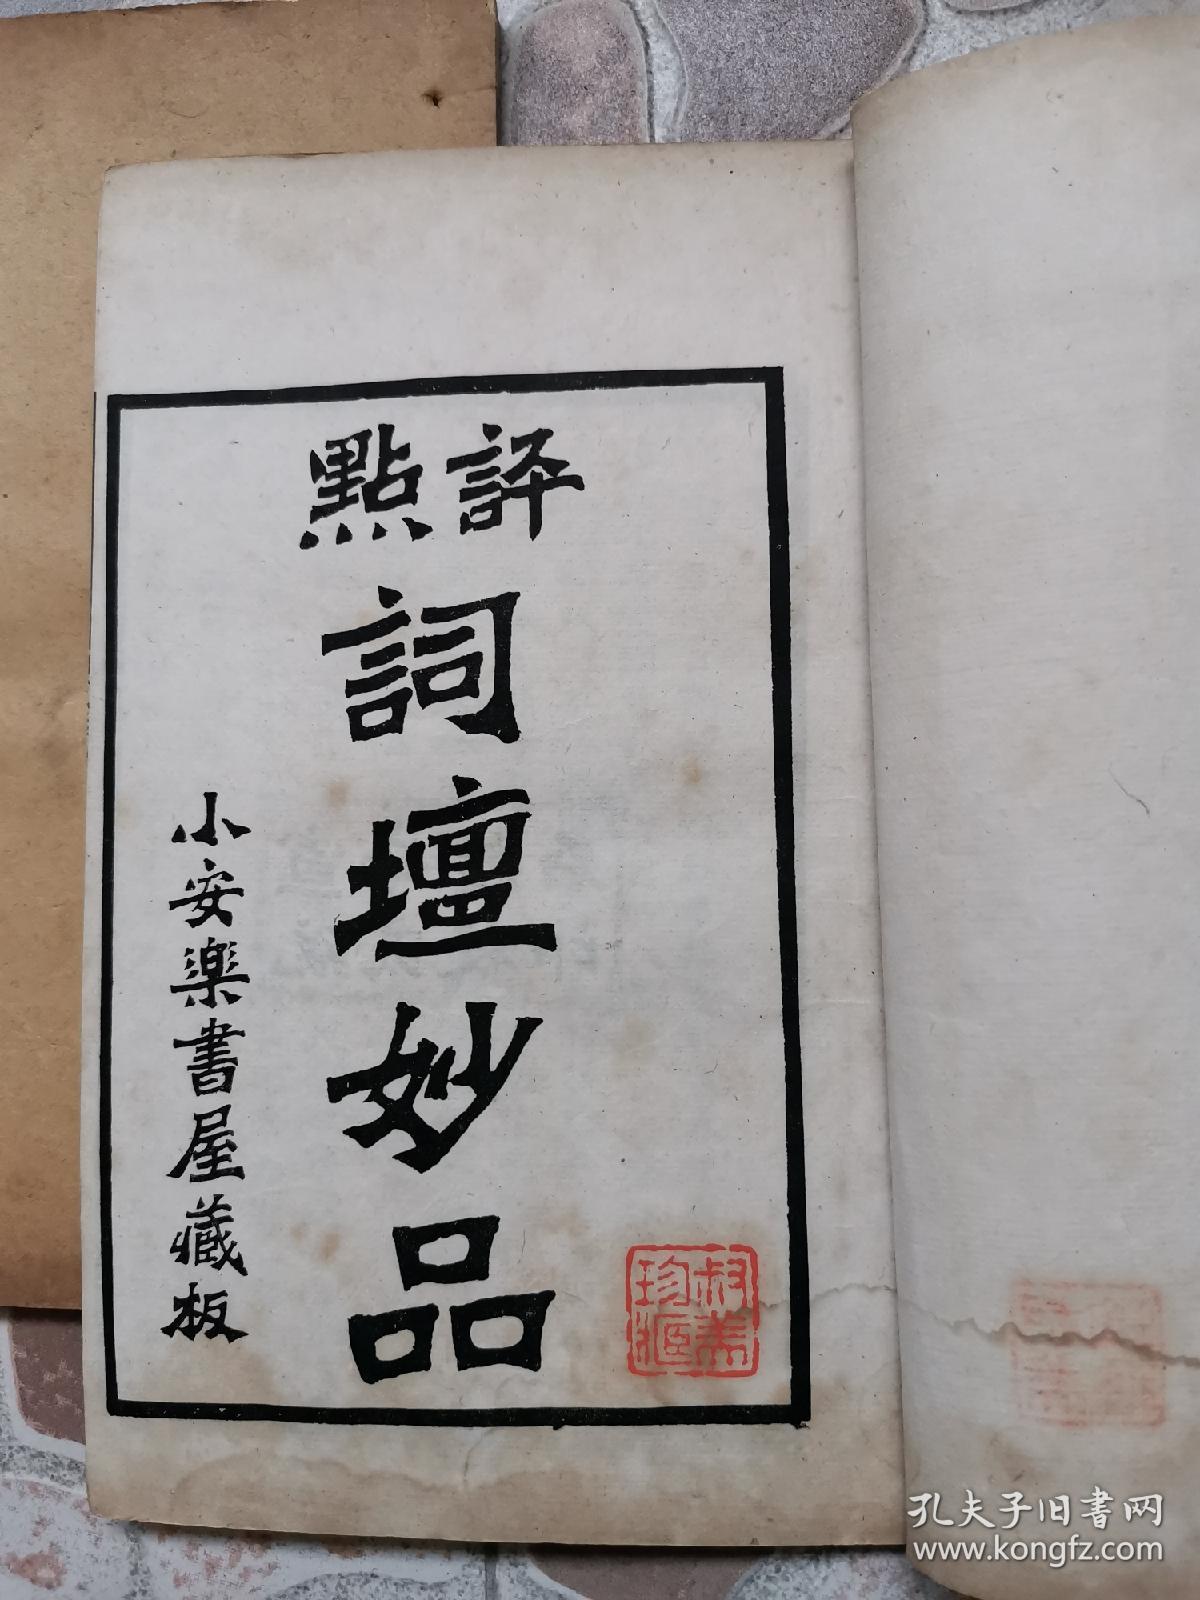 評點
詞壇妙品
小安樂書屋藏板
叔美
珍藏
孔夫子旧书网
www.kongfz.com